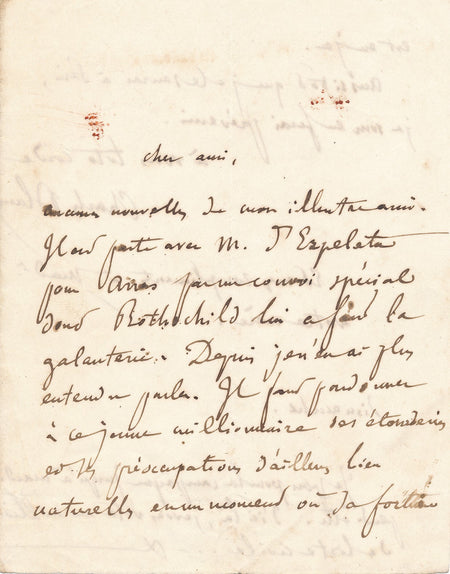 cher ami,
aucunes nouvelles de mon illustre ami.
Il est parti avec M. D'Ezpeleta
pour Arras par un convoi spécial
dont Rothschild lui a fait la
galanterie. Depuis je n'en ai plus
entendu parler. Il faut pardonner
à ce jeune millionnaire ses étourderies
et ses préoccupations d'ailleurs bien
naturelles en un moment où sa fortune